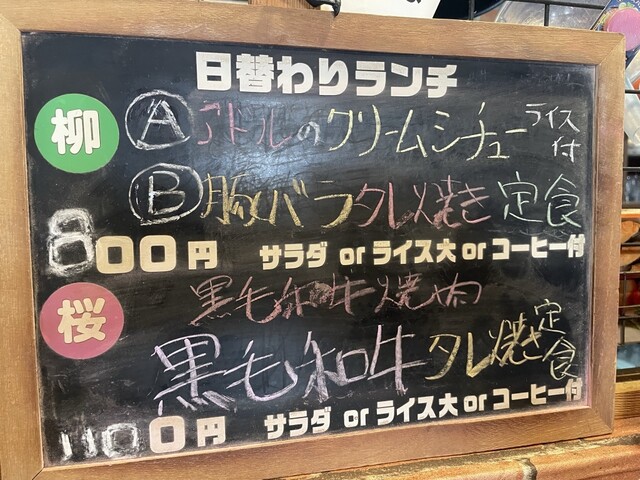 日替わりランチ
柳
Ⓐ アトルのクリームシチュー ライス付
Ⓑ 豚バラタレ焼き 定食
800円 サラダ or ライス大 or コーヒー付
桜
黒毛和牛焼肉
黒毛和牛タレ焼き定食
1100円 サラダ or ライス大 or コーヒー付